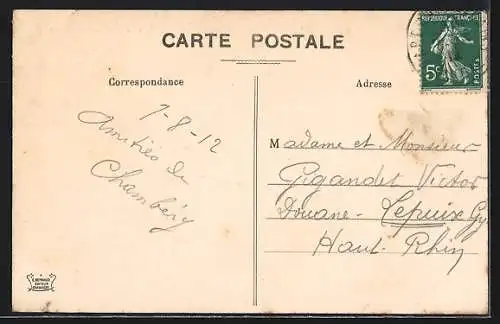 CARTE POSTALE
Correspondance
Adresse
RÉPUBLIQUE FRANÇAISE
5c
POSTES
7-8-12
Amitiés de
Chambéry
Madame et Monsieur
Gigandet Victor
Douane - Lepuix Gy
Haut-Rhin